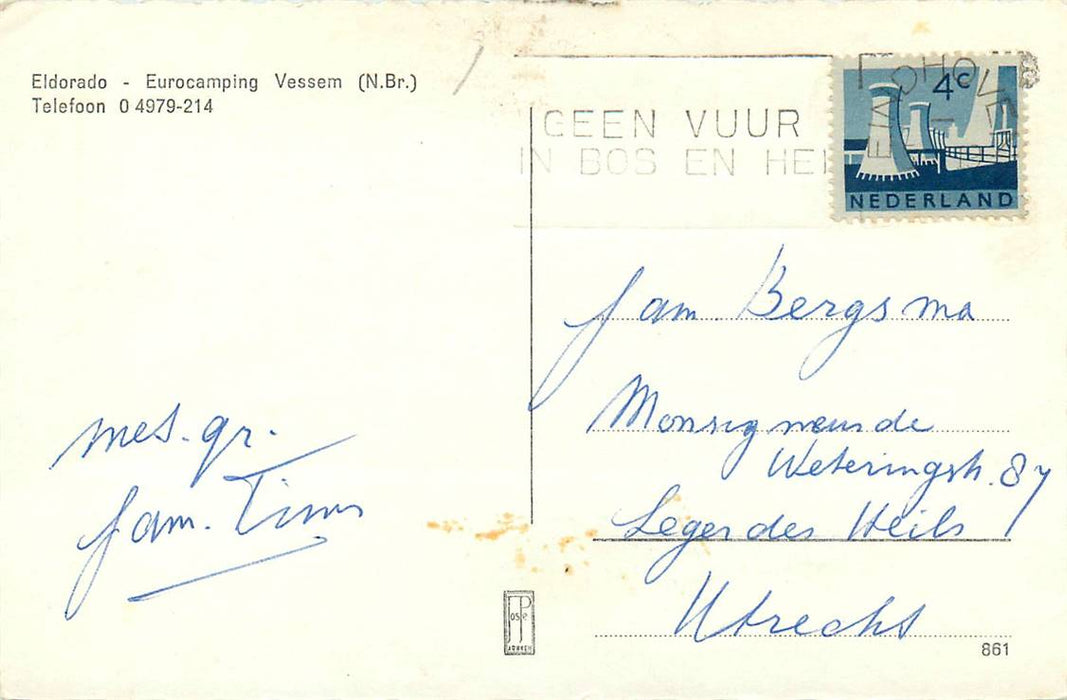 Eldorado - Eurocamping Vessem (N.Br.)
Telefoon 0 4979-214
GEEN VUUR
IN BOS EN HEI
EINDHOVEN
4c
NEDERLAND
fam. Bergsma
Monsigneur v de
Weteringstr. 87
Leger des Heils
Utrecht
met. gr.
fam. Tims
861